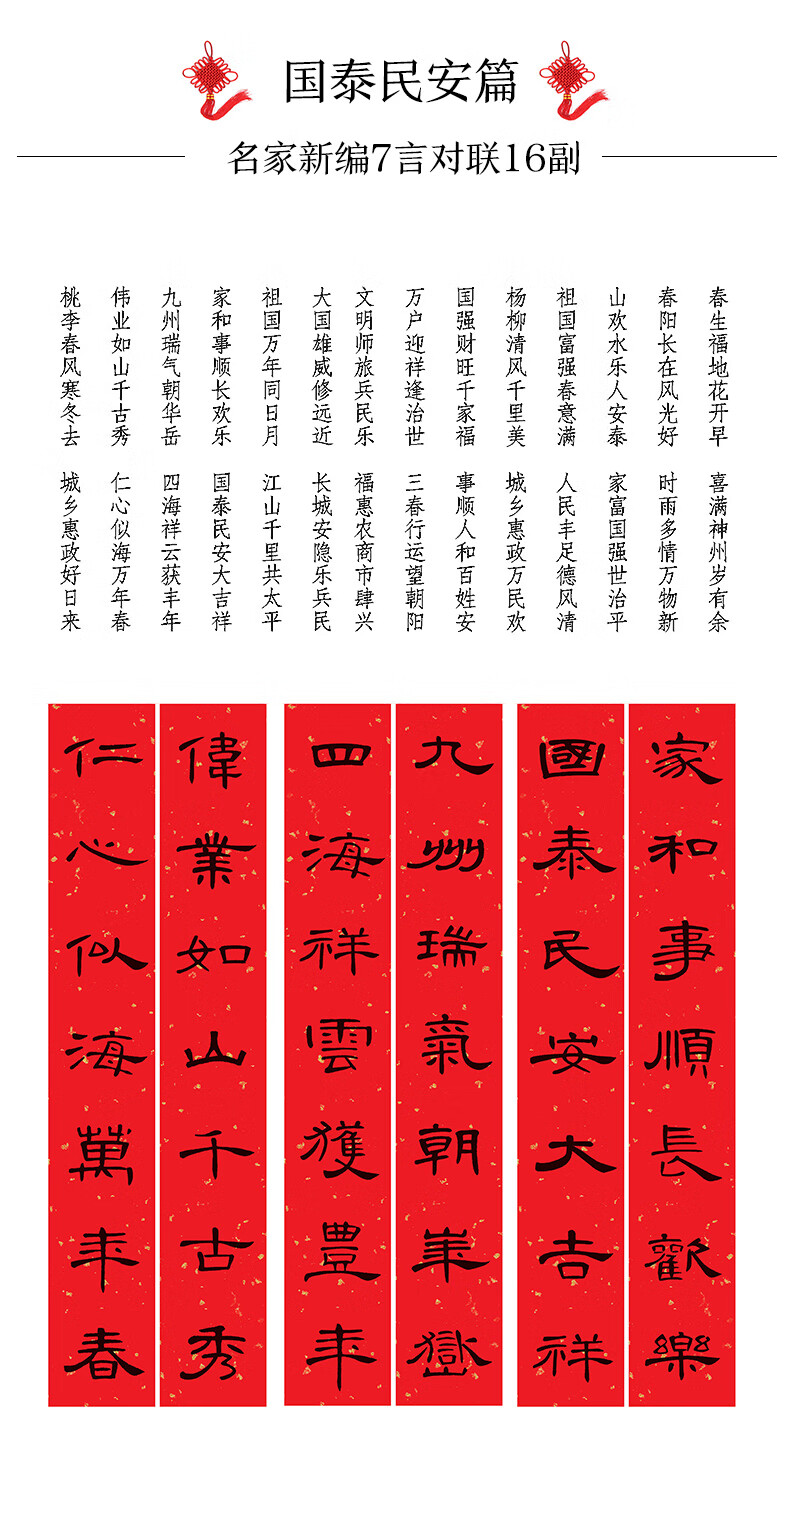 国泰民安篇
名家新编7言对联16副
春生福地花开早
喜满神州岁有余
春阳长在风光好
时雨多情万物新
山欢水乐人安泰
家富国强世治平
祖国富强春意满
人民丰足德风清
杨柳清风千里美
城乡惠政万民欢
国强财旺千家福
事顺人和百姓安
万户迎祥逢治世
三春行运望朝阳
文明师旅兵民乐
福惠农商市肆兴
大国雄威修远近
长城安隐乐兵民
祖国万年同日月
江山千里共太平
家和事顺长欢乐
国泰民安大吉祥
九州瑞气朝华岳
四海祥云获丰年
伟业如山千古秀
仁心似海万年春
桃李春风寒冬去
城乡惠政好日来
家和事順長歡樂
國泰民安大吉祥
九州瑞氣朝華嶽
四海祥雲獲豊年
偉業如山千古秀
仁心似海萬年春